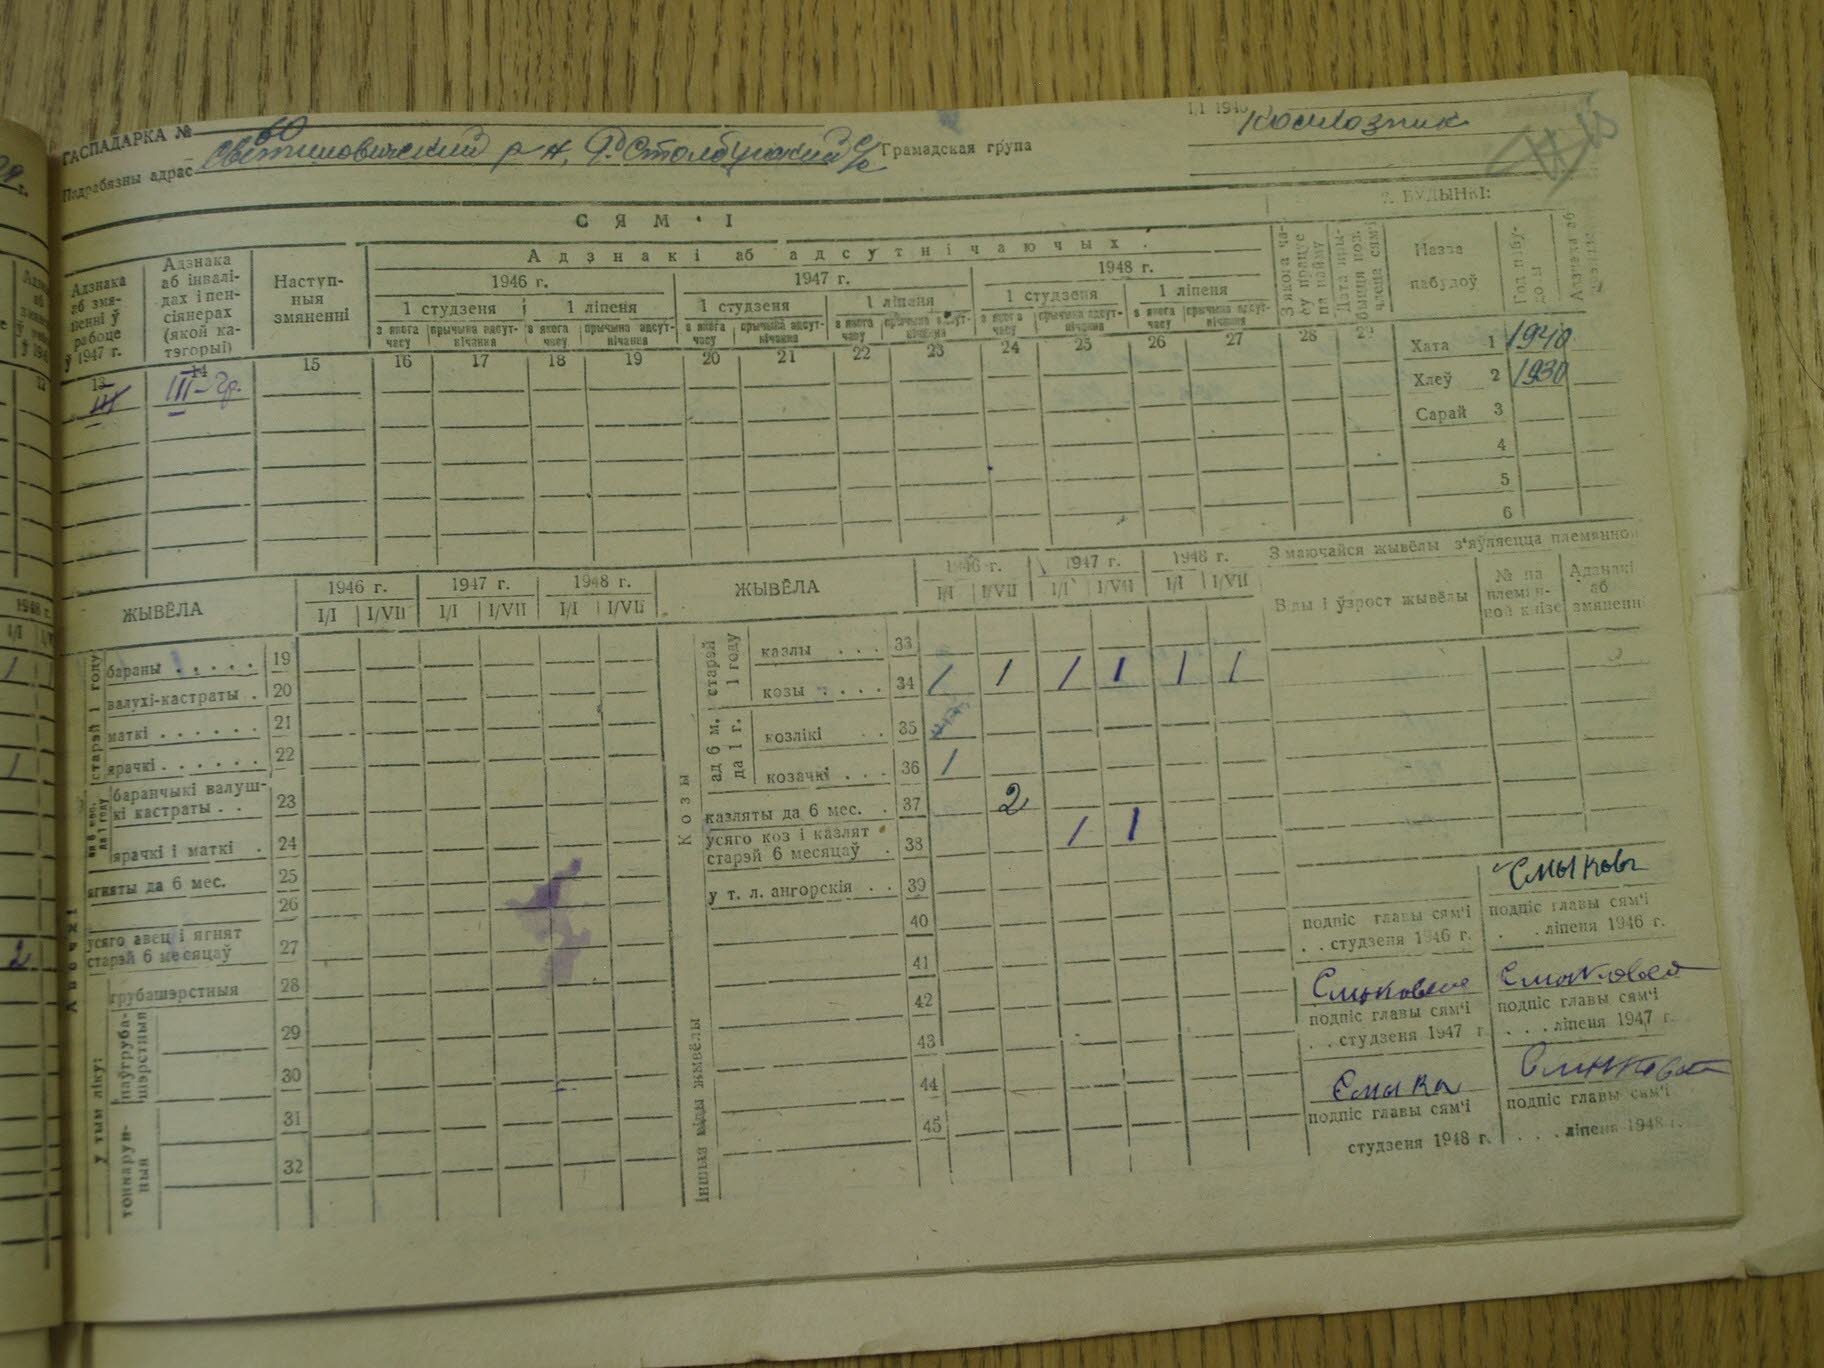 ГАСПАДАРКА № 60
Падрабязны адрас Светиловический р-н, Столбунский с/с
Грамадская група
Колхозник
СЯМ'І
2. БУДЫНКІ:
Адзнака аб змяненні ў рабоце ў 1947 г.
Адзнака аб інвалідах і пенсіянерах (якой катэгорыі)
Наступныя змяненні
Адзнакі аб адсутнічаючых
1946 г. 1947 г. 1948 г.
1 студзеня 1 ліпеня 1 студзеня 1 ліпеня 1 студзеня 1 ліпеня
з якога часу прычына адсутнічання з якога часу прычына адсутнічання з якога часу прычына адсутнічання з якога часу прычына адсутнічання з якога часу прычына адсутнічання з якога часу прычына адсутнічання
З якога часу працуе па найму
Назва пабудоў
Год пабудовы
13 14 15 16 17 18 19 20 21 22 23 24 25 26 27 28 29
III III-гр.
Хата 1 1940
Хлеў 2 1930
Сарай 3
4
5
6
ЖЫВЁЛА 1946 г. 1947 г. 1948 г.
I/I I/VII I/I I/VII I/I I/VII
Авечкі
старэй 1 году
бараны . . . . . 19
валухі-кастраты . 20
маткі . . . . . . 21
ярачкі . . . . . . 22
ад 6 мес. да 1 году
баранчыкі валушкі кастраты . . 23
ярачкі і маткі . 24
ягняты да 6 мес. 25
26
усяго авец і ягнят старэй 6 месяцаў 27
у тым ліку:
грубашэрстныя 28
паўгрубашэрстныя 29
30
тонкарунныя 31
32
ЖЫВЁЛА 1946 г. 1947 г. 1948 г.
I/I I/VII I/I I/VII I/I I/VII
Козы
старэй 1 году
казлы . . . 33
козы . . . . 34 1 1 1 1 1 1
ад 6 м. да 1 г.
козлікі . . 35
козачкі . . . 36 1
казляты да 6 мес. . 37 2
усяго коз і казлят старэй 6 месяцаў . 38 1 1
у т. л. ангорскія . . 39
іншыя віды жывёлы
40
41
42
43
44
45
З маючайся жывёлы з'яўляецца племянной
Віды і ўзрост жывёлы
№ па племяннной кнізе
Адзнакі аб змяненні
подпіс главы сям'і
. . студзеня 1946 г.
подпіс главы сям'і
. . ліпеня 1946 г.
подпіс главы сям'і
. . студзеня 1947 г.
подпіс главы сям'і
. . . ліпеня 1947 г.
подпіс главы сям'і
студзеня 1948 г.
подпіс главы сям'і
. . . ліпеня 1948 г.